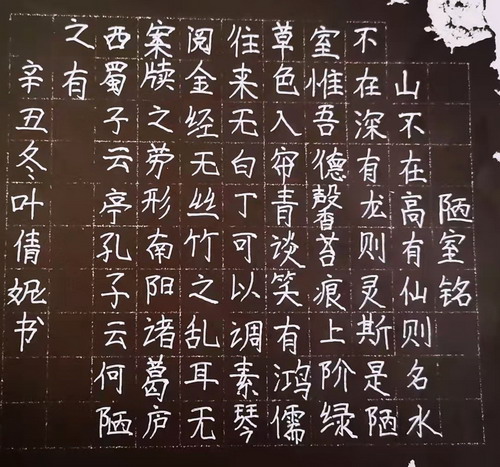 陋室铭
山不在高有仙则名水
不在深有龙则灵斯是陋
室惟吾德馨苔痕上阶绿
草色入帘青谈笑有鸿儒
往来无白丁可以调素琴
阅金经无丝竹之乱耳无
案牍之劳形南阳诸葛庐
西蜀子云亭孔子云何陋
之有
辛丑冬叶倩妮书